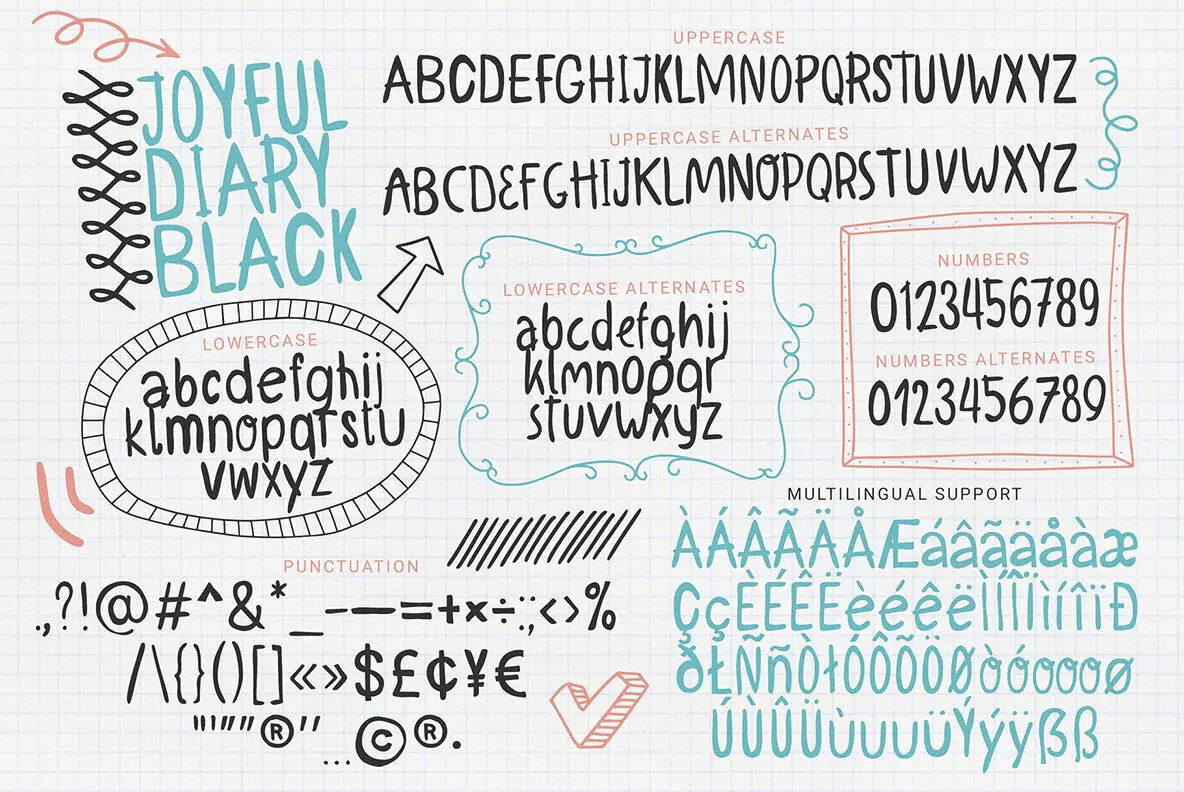 JOYFUL
DIARY
BLACK
UPPERCASE
ABCDEFGHIJKLMNOPQRSTUVWXYZ
UPPERCASE ALTERNATES
ABCDEFGHIJKLMNOPQRSTUVWXYZ
LOWERCASE
abcdefghij
klmnopqrstu
vwxyz
LOWERCASE ALTERNATES
abcdefghij
klmnopqr
stuvwxyz
NUMBERS
0123456789
NUMBERS ALTERNATES
0123456789
PUNCTUATION
.,?!@#^&*_-–—=+×÷:;<>%
/\{}()[]«»$£¢¥€
'"'"”®'' …©®.
MULTILINGUAL SUPPORT
ÀÁÂÃÄÅÆáâãäåàæ
ÇçÈÉÊËèéêëÌÍÎÏìíîïÐ
ðŁÑñÒłÓÔÕÖØòóôõöø
ÚÙÛÜùúûüÝýÿßß